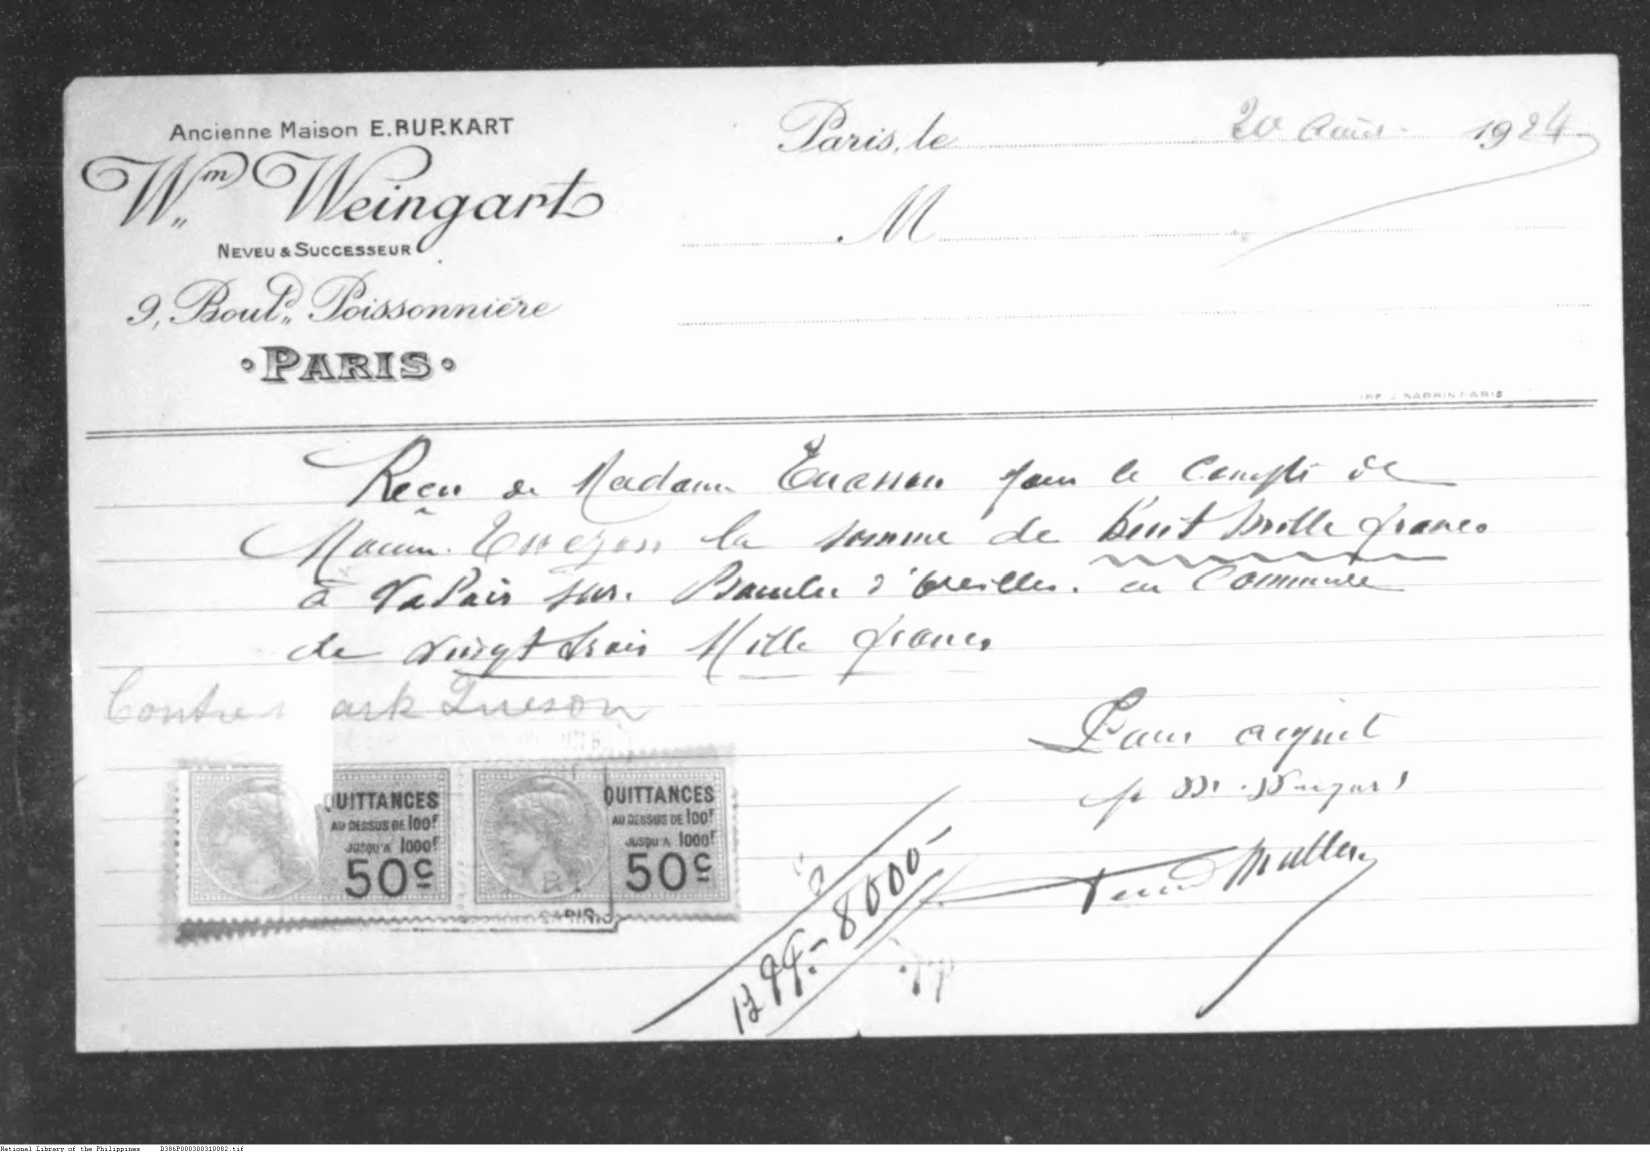 Ancienne Maison E. BURKART
Wm Weingart
NEVEU & SUCCESSEUR
9, Bould Poissonnière
PARIS
Paris, le 20 Août 1924
M
Reçu de Madame pour le Compte de
la somme de huit mille francs
à Valoir sur Boucles d'Oreilles. en Commune
de vingt trois Mille francs
Contre ark Quezon
Pour acquit
QUITTANCES
AU DESSUS DE 100F
JUSQU'A 1000F
50c
QUITTANCES
AU DESSUS DE 100F
JUSQU'A 1000F
50c
PARIS
8000
National Library of the Philippines D386P000300310082.tif